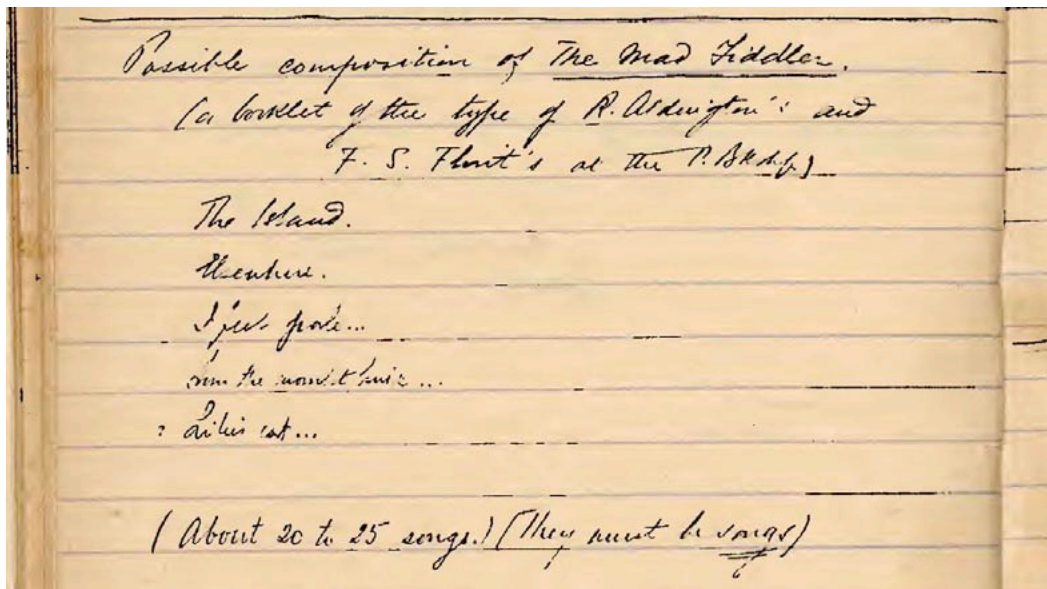 Possible composition of The Mad Fiddler.
(a booklet of the type of R. Aldington's and
F. S. Flint's at the P. Bkshp.)
The Island.
Elsewhere.
I feel pale...
the
? Lilies
(About 20 to 25 songs.) (They must be songs)